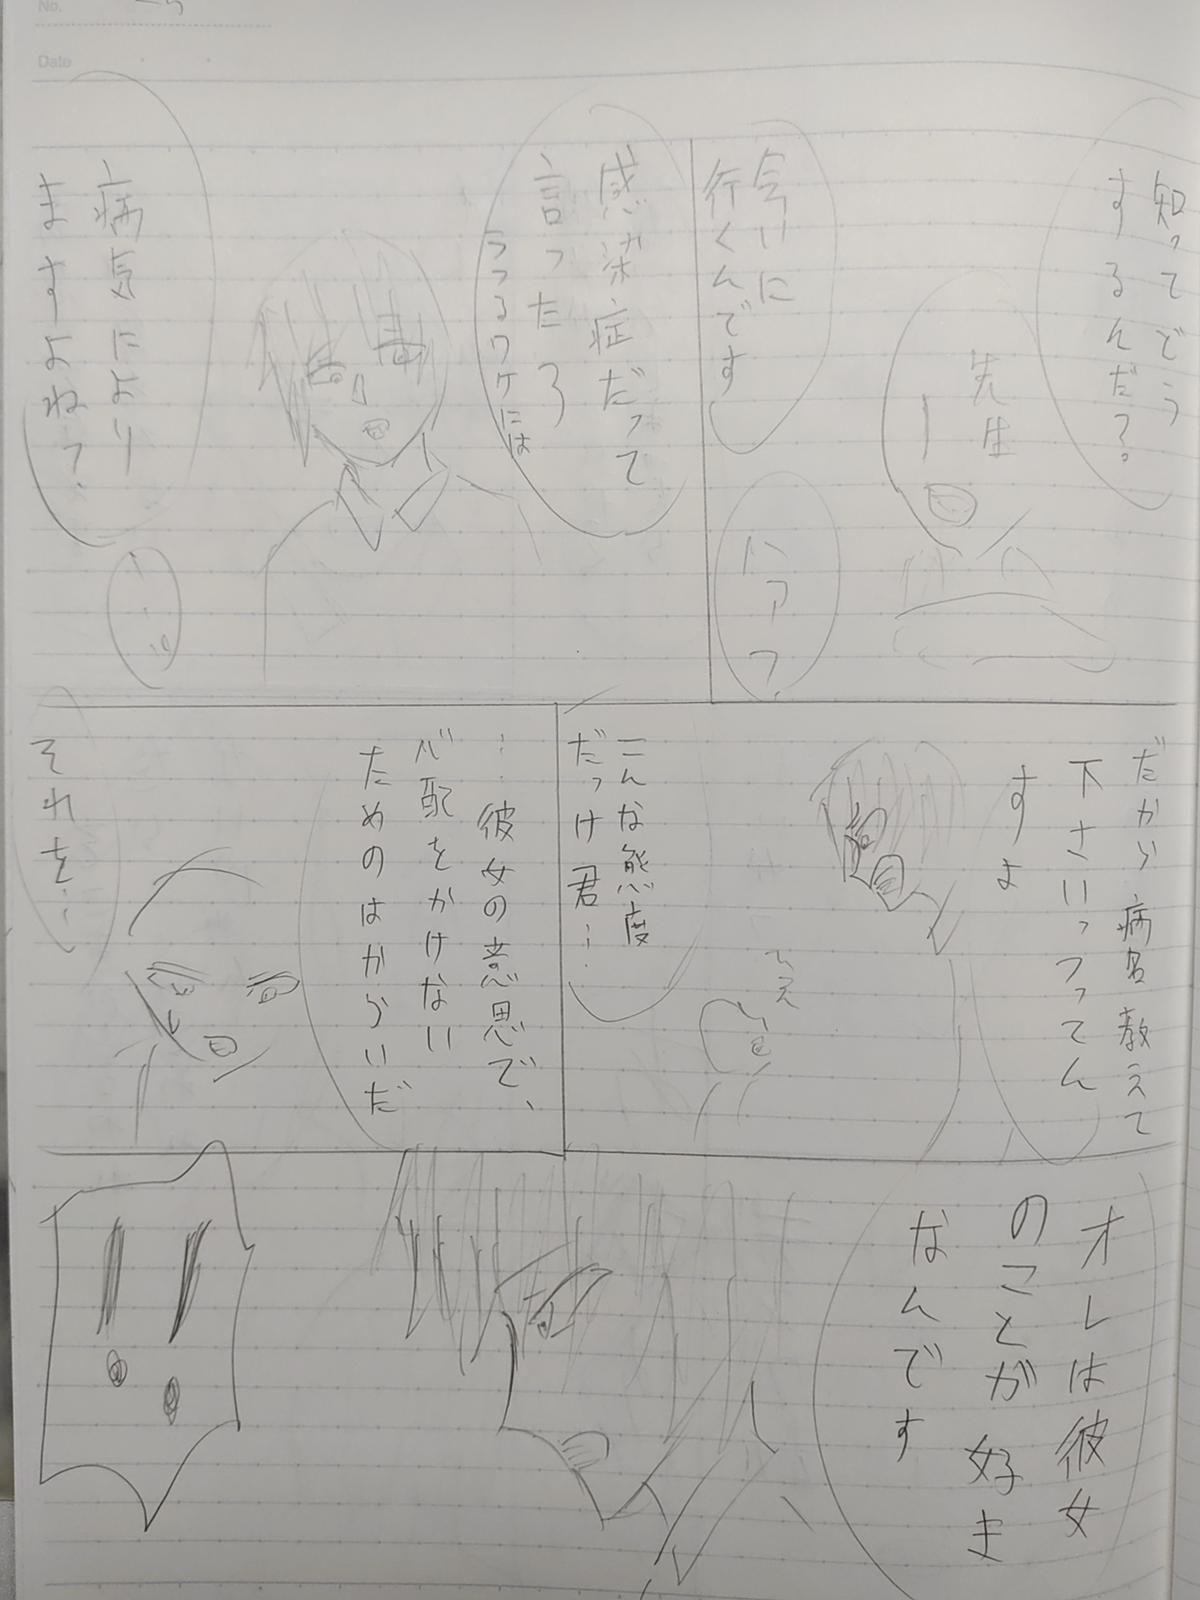 No.
Date
知ってどう
するんだ?
先生
ハアフ
今いに
行くんです
感染症だって
言ったろ
うつるワケには
病気により
ますよね?
だから病名教えて
下さいっつってん
すよ
ちえ
こんな態度
だっけ君…
…彼女の意思で、
心配をかけない
ためのはからいだ
それを…
オレは彼女
のことが好き
なんです
!!